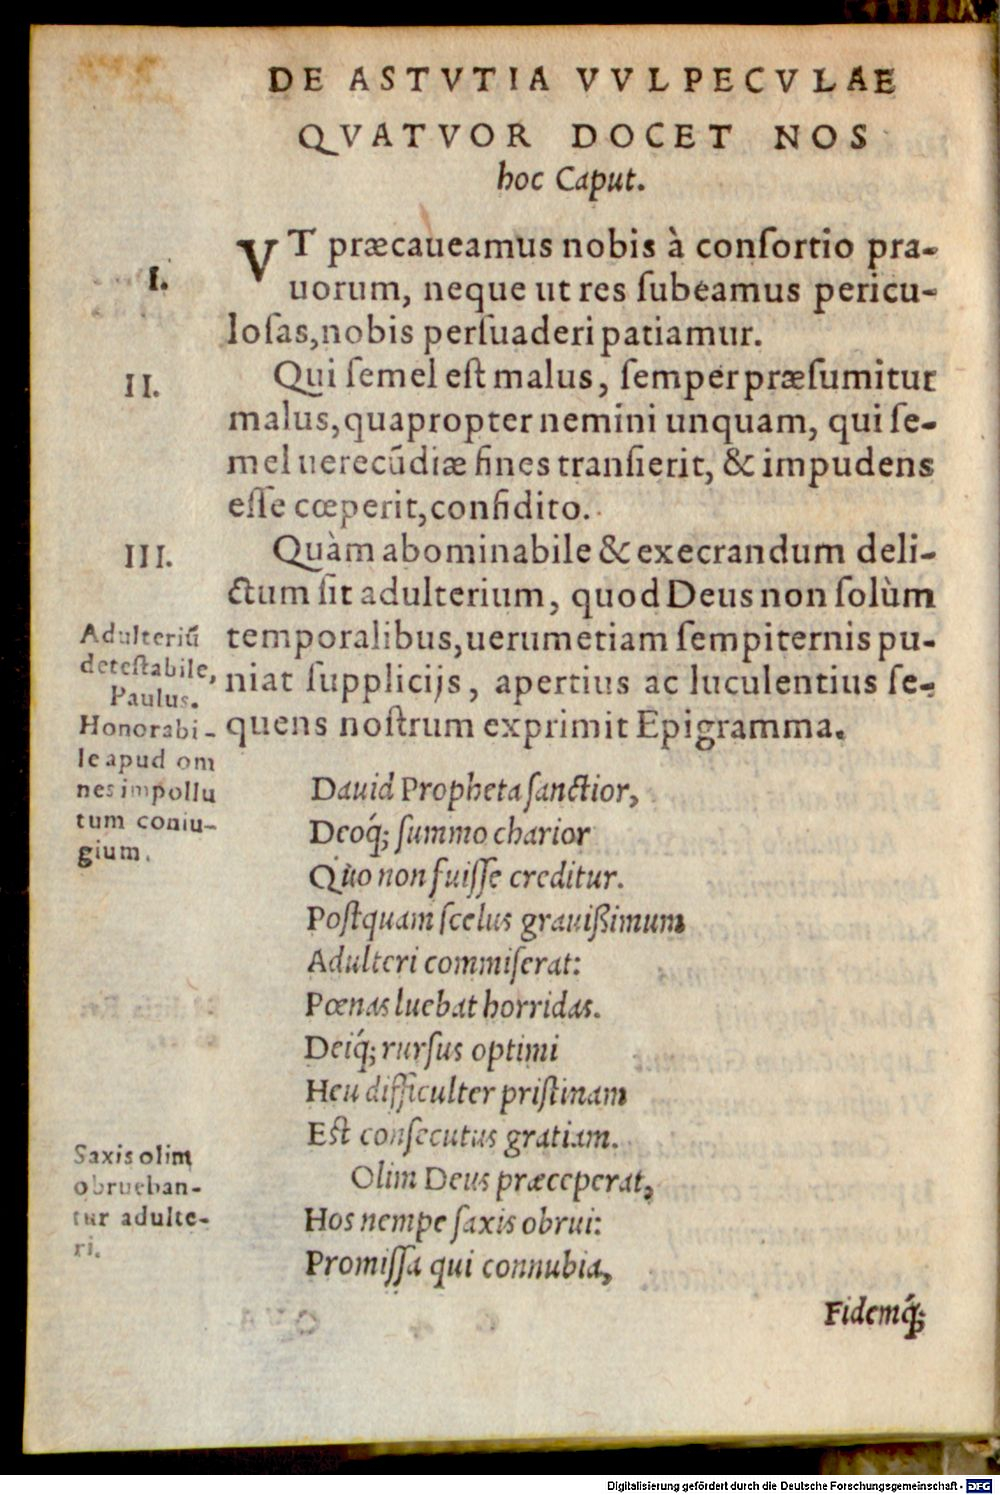 DE ASTVTIA VVLPECVLAE
QVATVOR DOCET NOS
hoc Caput.
I.
VT præcaueamus nobis à conſortio pra-
uorum, neque ut res ſubeamus pericu-
loſas, nobis perſuaderi patiamur.
II.
Qui ſemel eſt malus, ſemper præſumitur
malus, quapropter nemini unquam, qui ſe-
mel uerecūdiæ fines tranſierit, & impudens
eſſe cœperit, confidito.
III.
Quàm abominabile & execrandum deli-
ctum ſit adulterium, quod Deus non ſolùm
temporalibus, uerumetiam ſempiternis pu-
niat ſupplicijs, apertius ac luculentius ſe-
quens noſtrum exprimit Epigramma.
Adulteriū
deteſtabile,
Paulus.
Honorabi-
le apud om
nes impollu
tum coniu-
gium.
Dauid Propheta ſanctior,
Deoq́; ſummo charior
Quo non fuiſſe creditur.
Poſtquam ſcelus grauißimum
Adulteri commiſerat:
Pœnas luebat horridas.
Deiq́; rurſus optimi
Heu difficulter priſtinam
Eſt conſecutus gratiam.
Olim Deus præceperat,
Hos nempe ſaxis obrui:
Promiſſa qui connubia,
Saxis olim
obrueban-
tur adulte-
ri.
Fidemq́;
Digitalisierung gefördert durch die Deutsche Forschungsgemeinschaft - DFG